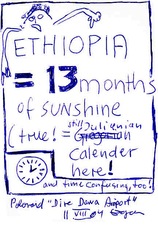 ETHIOPIA
= 13 months
of SUNSHINE
(true! = still Julienian
Calender
here!
and time confusing, too!
"Dire Dawa Airport"
11 VIII 04